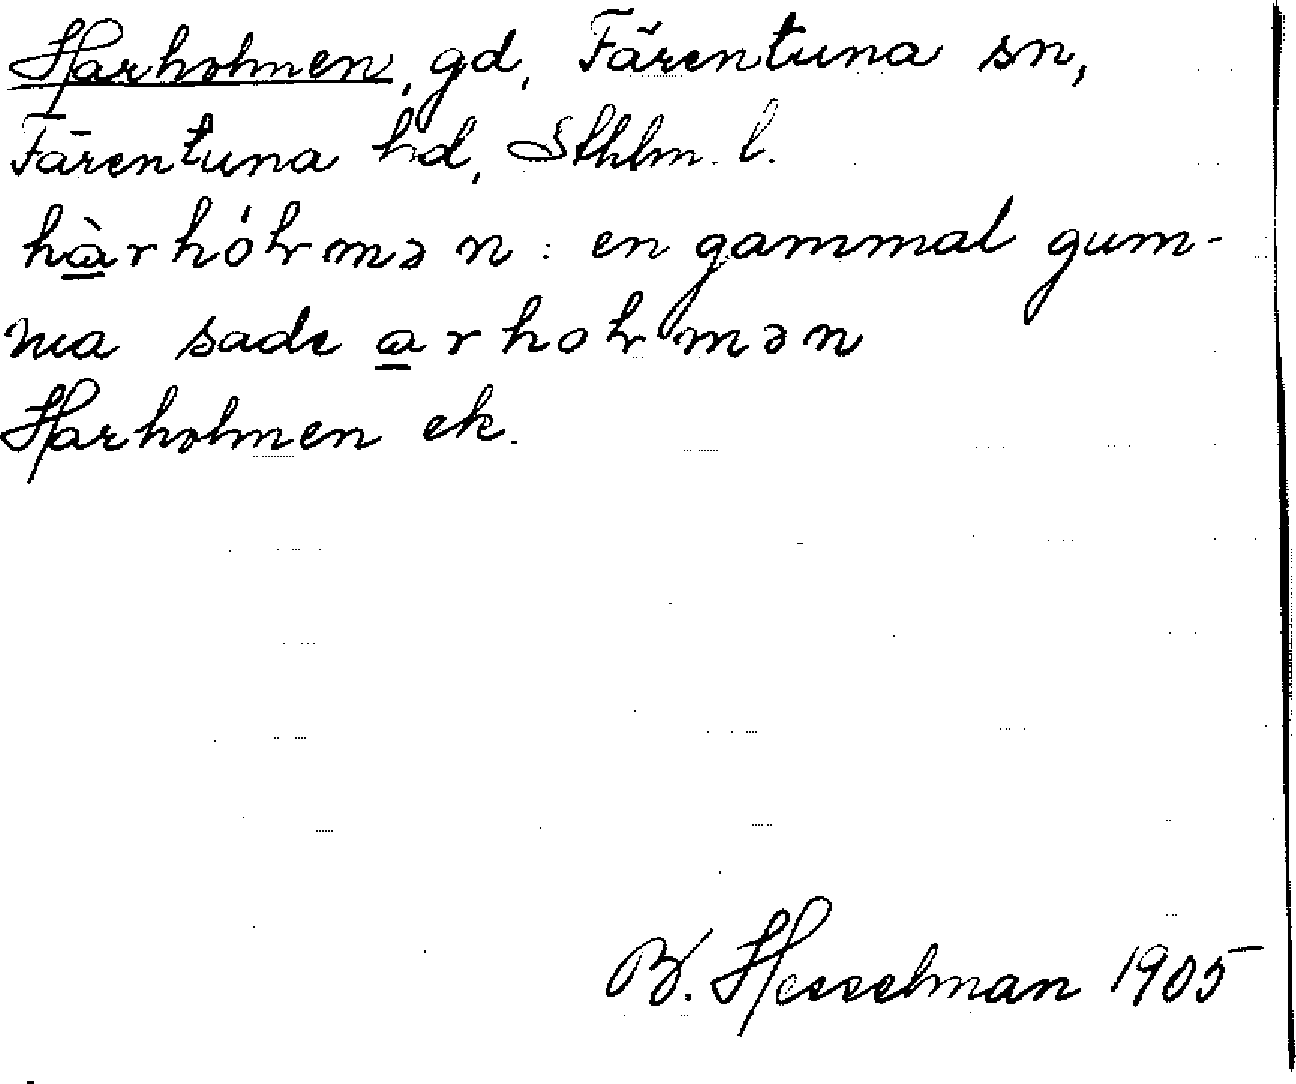 Harholmen, gd, Färentuna sn,
Färentuna hd, Sthlm. l.
hàrhóɽmən : en gammal gum-
ma sade arhoɽmən
Harholmen ek.
B. Hesselman 1905